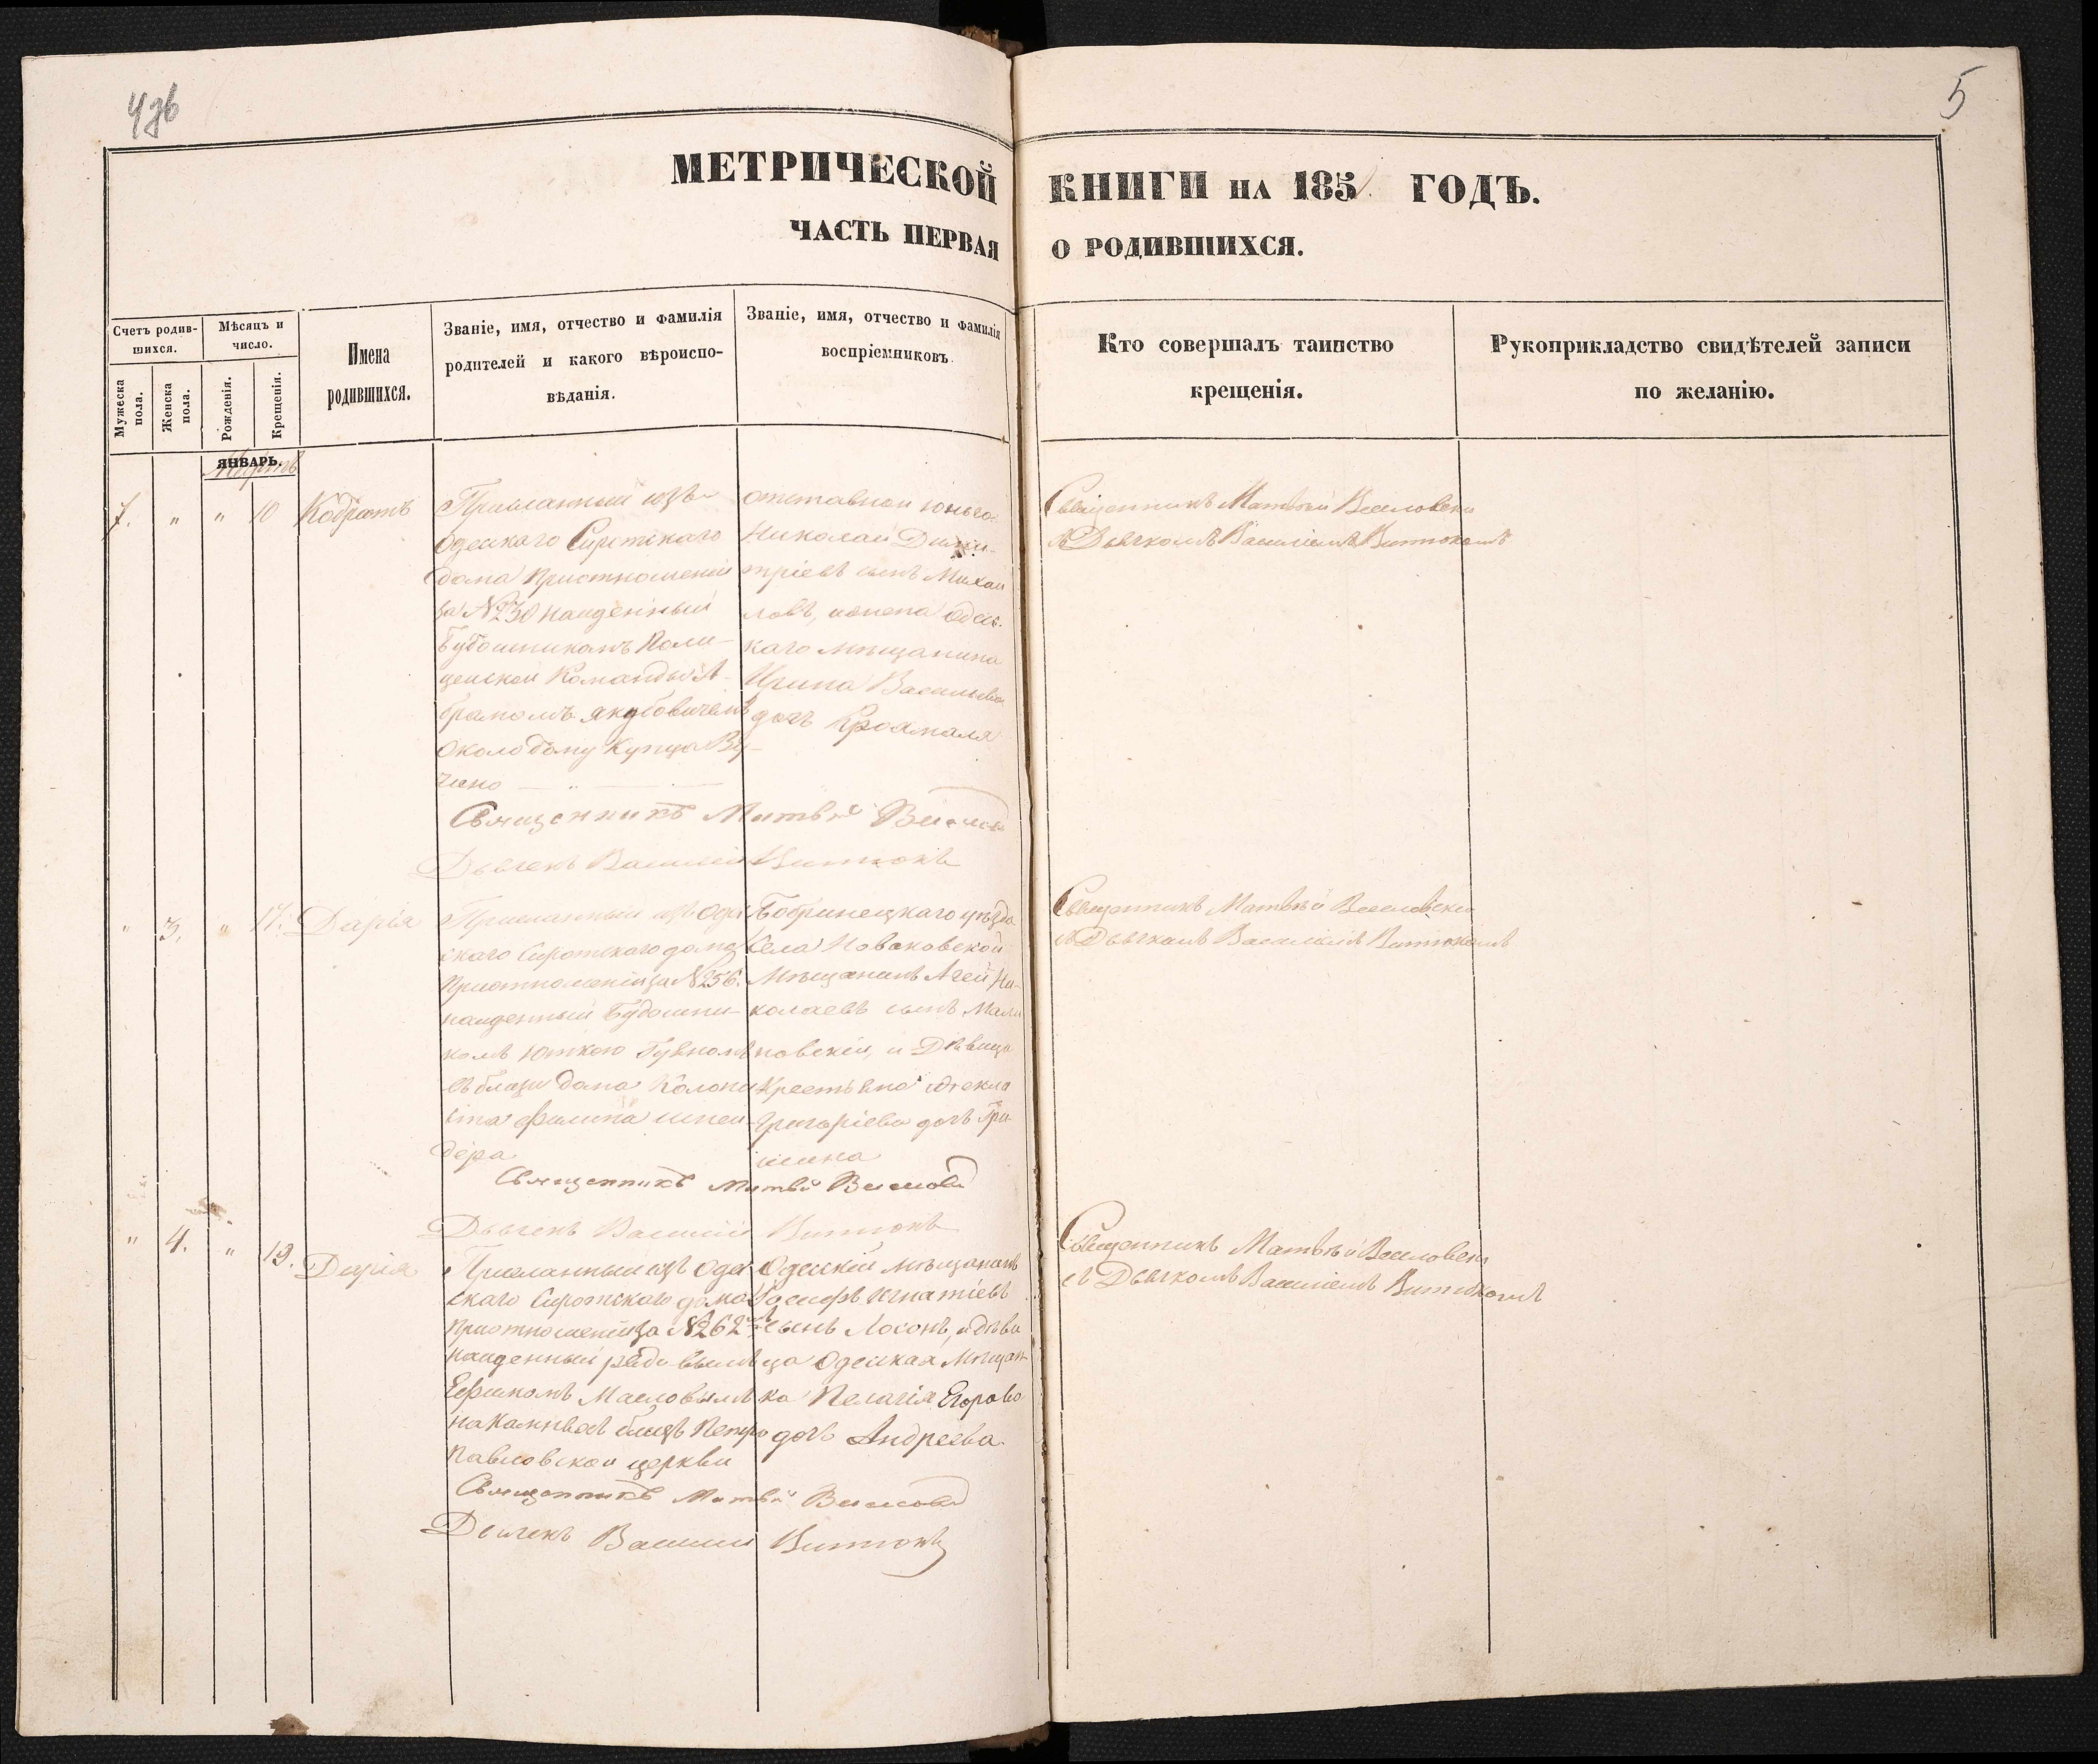 4зв
5
МЕТРИЧЕСКОЙ КНИГИ НА 185 ГОДЪ.
ЧАСТЬ ПЕРВАЯ О РОДИВШИХСЯ.
Счетъ родив-
шихся.
Мужеска
пола.
Женска
пола.
Мѣсяцъ и
число.
Рожденія.
Крещенія.
Имена
родившихся.
Званіе, имя, отчество и фамилія
родителей и какого вѣроиспо-
вѣданія.
Званіе, имя, отчество и фамилія
воспріемниковъ.
Кто совершалъ таинство
крещенія.
Рукоприкладство свидѣтелей записи
по желанію.
ЯНВАРЬ.
Мартъ
7. " " 10 Кодратъ
Присланный изъ
Одескаго Сиротскаго
дома приотношеніи
за №230 найденный
Будошникомъ Поли-
цейской Команды А-
брамомъ Якубовичемъ
около дому Купца Ву-
чино
отставной юнкеръ
Николай Дими-
тріевъ сынъ Михаи
ловъ, и жена Одес-
каго мѣщанина
Ирина Васильева
дочь Крохмаля
Священникъ Матвѣй
Дьячекъ Василій Витюкъ
Священникъ Матвѣй Веселовски
съ Дьячкомъ Василіемъ Витюкомъ
" 3. " 17. Дарія
Присланный изъ Оде
скаго Сиротскаго дома
приотношеніи за №256.
найденный Будошни-
комъ Юткою
въ близи дома Колони
ста Филипа Шней
дера
Бобринецкаго уѣзда
села Новаковской
Мѣщанинъ Агей Ни-
колаевъ сынъ Мали
новскій, и Дѣвица
Крестьянка Фекла
Григоріева дочь Гри
шина
Священникъ Матвѣй
Дьячекъ Василій Витюкъ
Священникъ Матвѣй Веселовски
съ Дьячкомъ Василіемъ Витюкомъ
" 4. " 19. Дарія
Присланный изъ Оде
скаго Сиротскаго дома
приотношеніи за №262
найденный рядовымъ
Ефимомъ Масловымъ
близъ Петро
Павловской церкви
Одескій мѣщанинъ
Іосифъ Игнатіевъ
сынъ Лосонъ, и дѣви
ца Одеская Мѣщан
ка Пелагія Егорова
дочь Андреева.
Священникъ Матвѣй
Дьячекъ Василій Витюкъ
Священникъ Матвѣй Веселовски
съ Дьячкомъ Василіемъ Витюкомъ